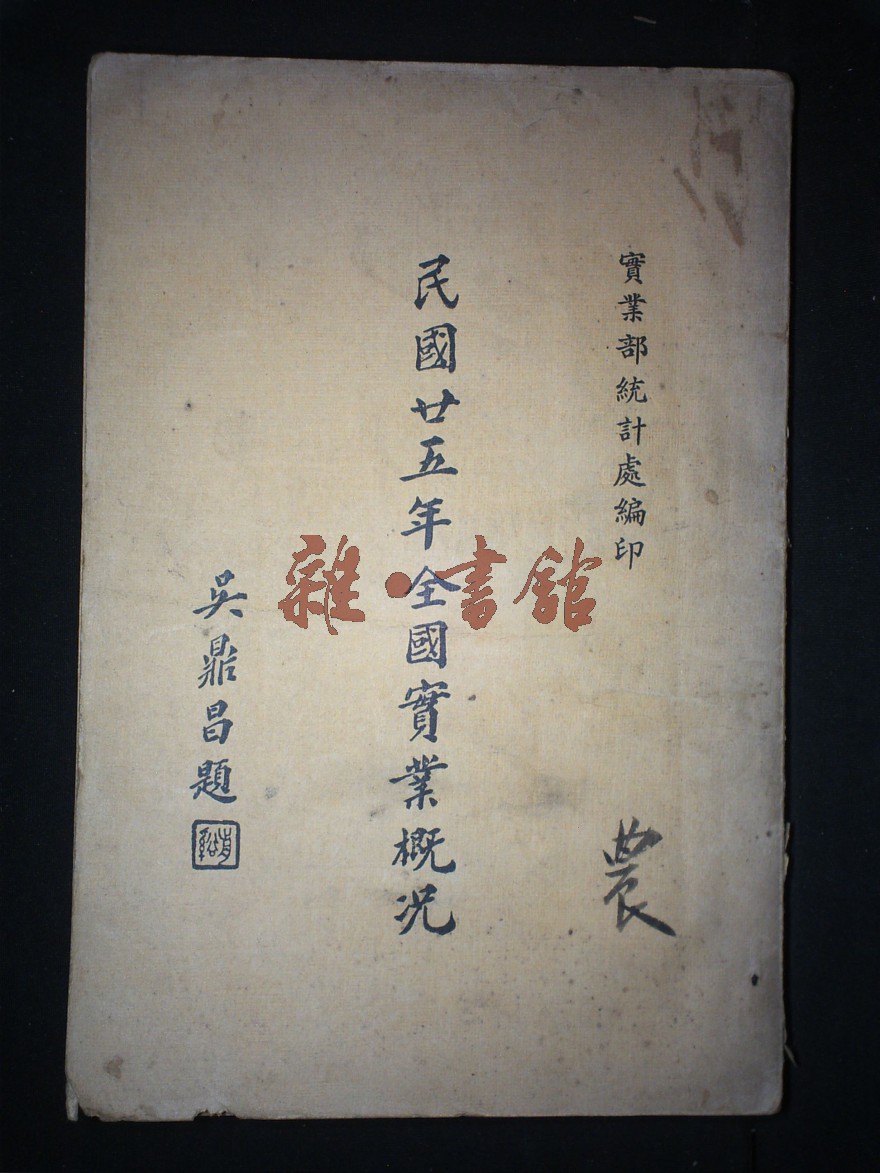 實業部統計處編印
民國廿五年全國實業概況
吳鼎昌題
農
雜·書館